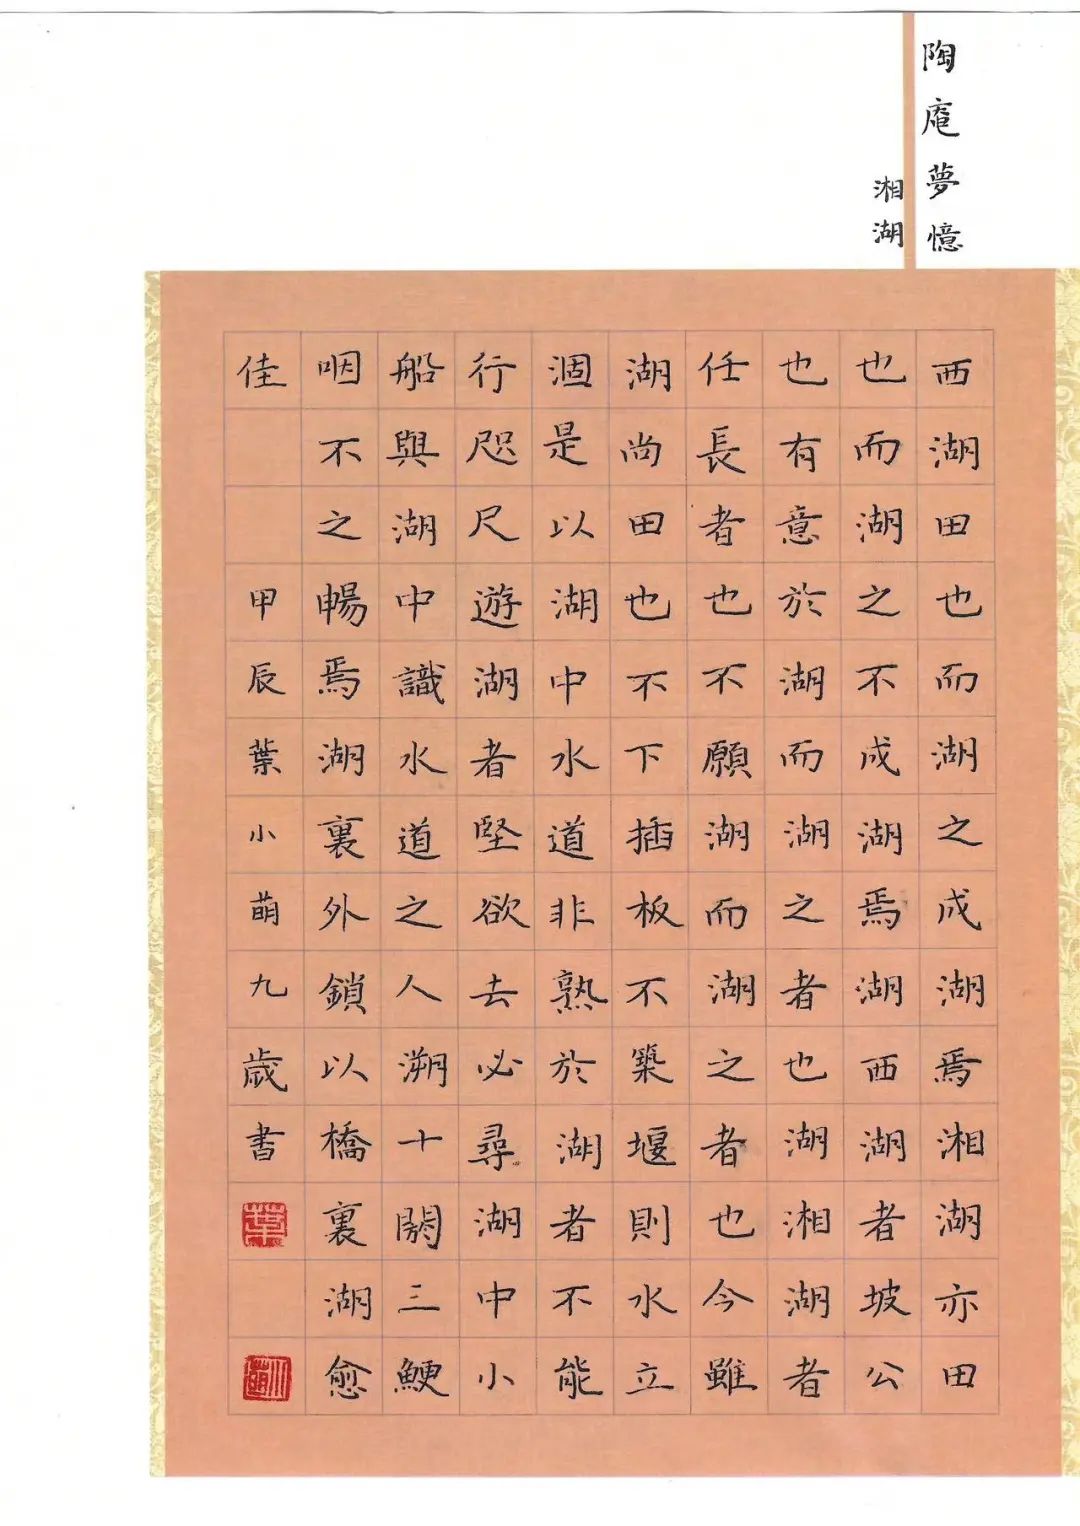 陶庵夢憶
湘湖
西湖田也而湖之成湖焉湘湖亦田
也而湖之不成湖焉湖西湖者坡公
也有意於湖而湖之者也湖湘湖者
任長者也不願湖而湖之者也今雖
湖尚田也不下插板不築堰則水立
涸是以湖中水道非熟於湖者不能
行咫尺遊湖者堅欲去必尋湖中小
船與湖中識水道之人溯十閼三鯁
咽不之暢焉湖裏外鎖以橋裏湖愈
佳
甲辰葉小萌九歲書
葉
小萌